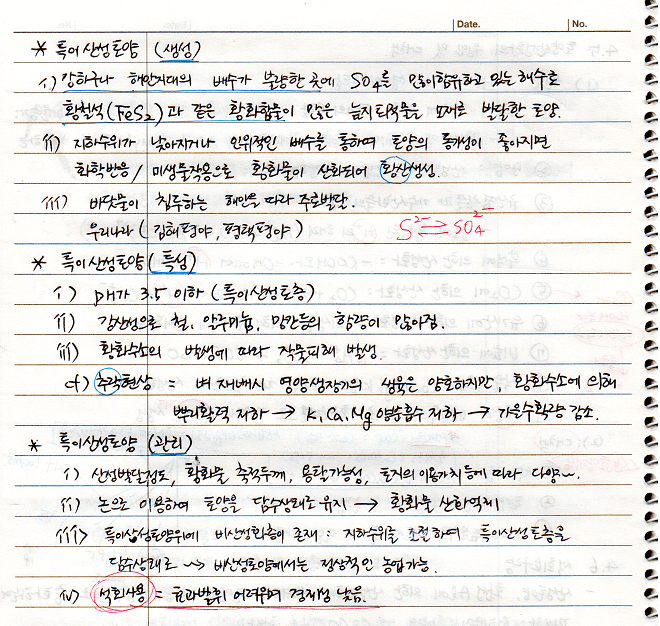 Date. No.
* 특이산성토양 (생성)
i) 강하구나 해안지대의 배수가 불량한 곳에 SO4를 많이함유하고 있는 해수로
황철석(FeS2)과 같은 황화합물이 많은 늪지퇴적물을 모재로 발달한 토양.
ii) 지하수위가 낮아지거나 인위적인 배수를 통하여 토양의 통기성이 좋아지면
화학반응/미생물작용으로 황화물이 산화되어 황산생성.
iii) 바닷물이 침투하는 해안을 따라 주로발달.
우리나라 (김해평야, 평택평야) S²⁻ ⇄ SO₄²⁻
* 특이산성토양 (특성)
i) pH가 3.5 이하 (특이산성토층)
ii) 강산성으로 철, 알루미늄, 망간등의 함량이 많아짐.
iii) 황화수소의 발생에 따라 작물피해 발생.
cf) 추락현상 = 벼 재배시 영양생장기의 생육은 양호하지만, 황화수소에 의해
뿌리활력 저하 → K, Ca, Mg 양분흡수 저하 → 가을수확량 감소.
* 특이산성토양 (관리)
i) 산성발달정도, 황화물 축적두께, 용탈가능성, 토지의 이용가치 등에 따라 다양~.
ii) 논으로 이용하여 토양을 담수상태로 유지 → 황화물 산화억제
iii) 특이산성토양위에 비산성화층이 존재 : 지하수위를 조절하여 특이산성토층을
담수상태로 → 비산성토양에서는 정상적인 농업가능.
iv) 석회사용 = 효과발휘 어려우며 경제성 낮음.